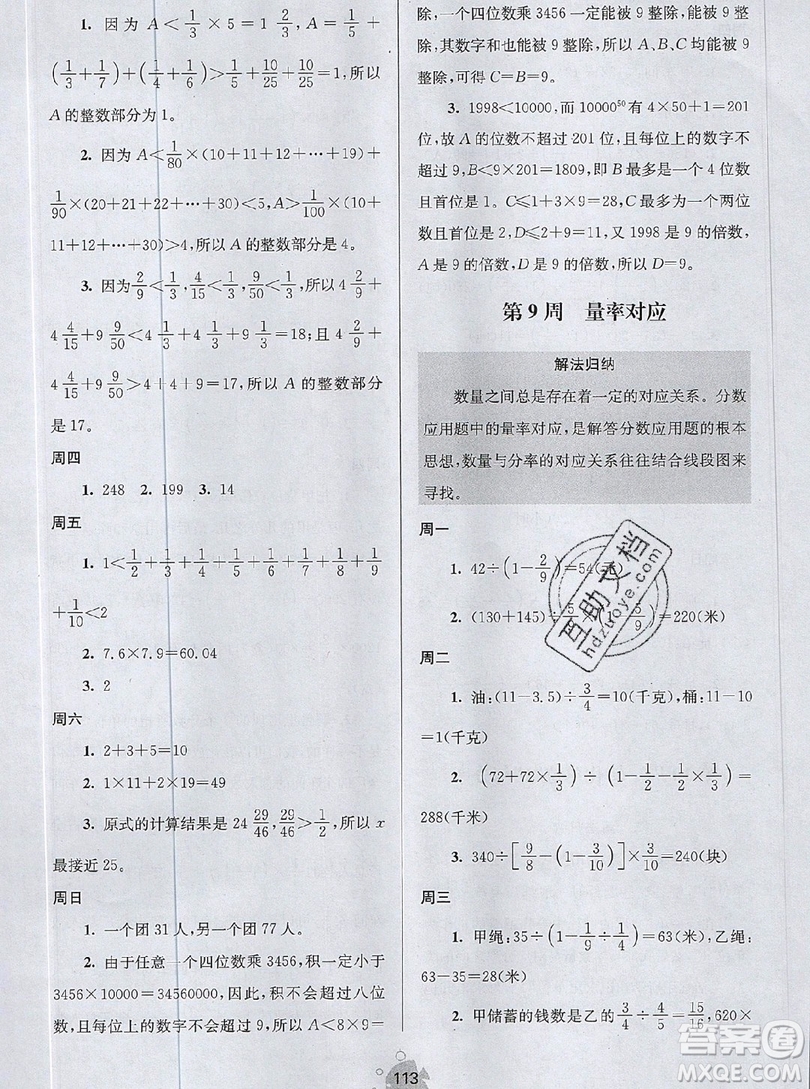 1. 因为 A<1/3×5=1 2/3，A=1/5+
(1/3+1/7)+(1/4+1/6)>1/5+10/25+10/25=1，所以
A 的整数部分为 1。
2. 因为 A<1/80×(10+11+12+…+19)+
1/90×(20+21+22+…+30)<5，A>1/100×(10+
11+12+…+30)>4，所以 A 的整数部分是 4。
3. 因为 2/9<1/3，4/15<1/3，9/50<1/3，所以 4 2/9+
4 4/15+9 9/50<4 1/3+4 1/3+9 1/3=18；且 4 2/9+
4 4/15+9 9/50>4+4+9=17，所以 A 的整数部分
是 17。
周四
1. 248 2. 199 3. 14
周五
1. 1<1/2+1/3+1/4+1/5+1/6+1/7+1/8+1/9
+1/10<2
2. 7.6×7.9=60.04
3. 2
周六
1. 2+3+5=10
2. 1×11+2×29=69
3. 原式的计算结果是 24 29/46，29/46>1/2，所以 x
最接近 25。
周日
1. 一个团 31 人，另一个团 77 人。
2. 由于任意一个四位数乘 3456，积一定小于
3456×10000=34560000，因此，积不会超过八位
数，且每位上的数字不会超过 9，所以 A<8×9=
除，一个四位数乘 3456 一定能被 9 整除，能被 9 整
除，其数字和也能被 9 整除，所以 A、B、C 均能被 9
整除，可得 C=B=9。
3. 1998<10000，而 10000⁵⁰ 有 4×50+1=201
位，故 A 的位数不超过 201 位，且每位上的数字不
超过 9，B<9×201=1809，即 B 最多是一个 4 位数
且首位是 1。C≤1+3×9=28，C 最多为一个两位
数且首位是 2，D≤2+9=11，又 1998 是 9 的倍数，
A 是 9 的倍数，所以 D 是 9 的倍数，可知 D=9。
第 9 周 量率对应
解法归纳
数量之间总是存在着一定的对应关系。分数
应用题中的量率对应，是解答分数应用题的根本
思想，数量与分率的对应关系往往结合线段图来
寻找。
周一
1. 42÷(1-2/9)=54(元)
2. (130+145)÷(5/9)=220(米)
周二
1. 油：(11-3.5)÷3/4=10(千克)，桶：11-10
=1(千克)
2. (72+72×1/3)÷(1-1/2-1/2×1/3)=
288(千米)
3. 340÷[9/8-(1-3/10)]×3/10=240(块)
周三
1. 甲绳：35÷(1-1/9÷1/4)=63(米)，乙绳：
63-35=28(米)
2. 甲储蓄的钱数是乙的 3/4÷4/5=15/16，620×
113
互助文档
hdzuoye.com
答案圈
MXQE.COM